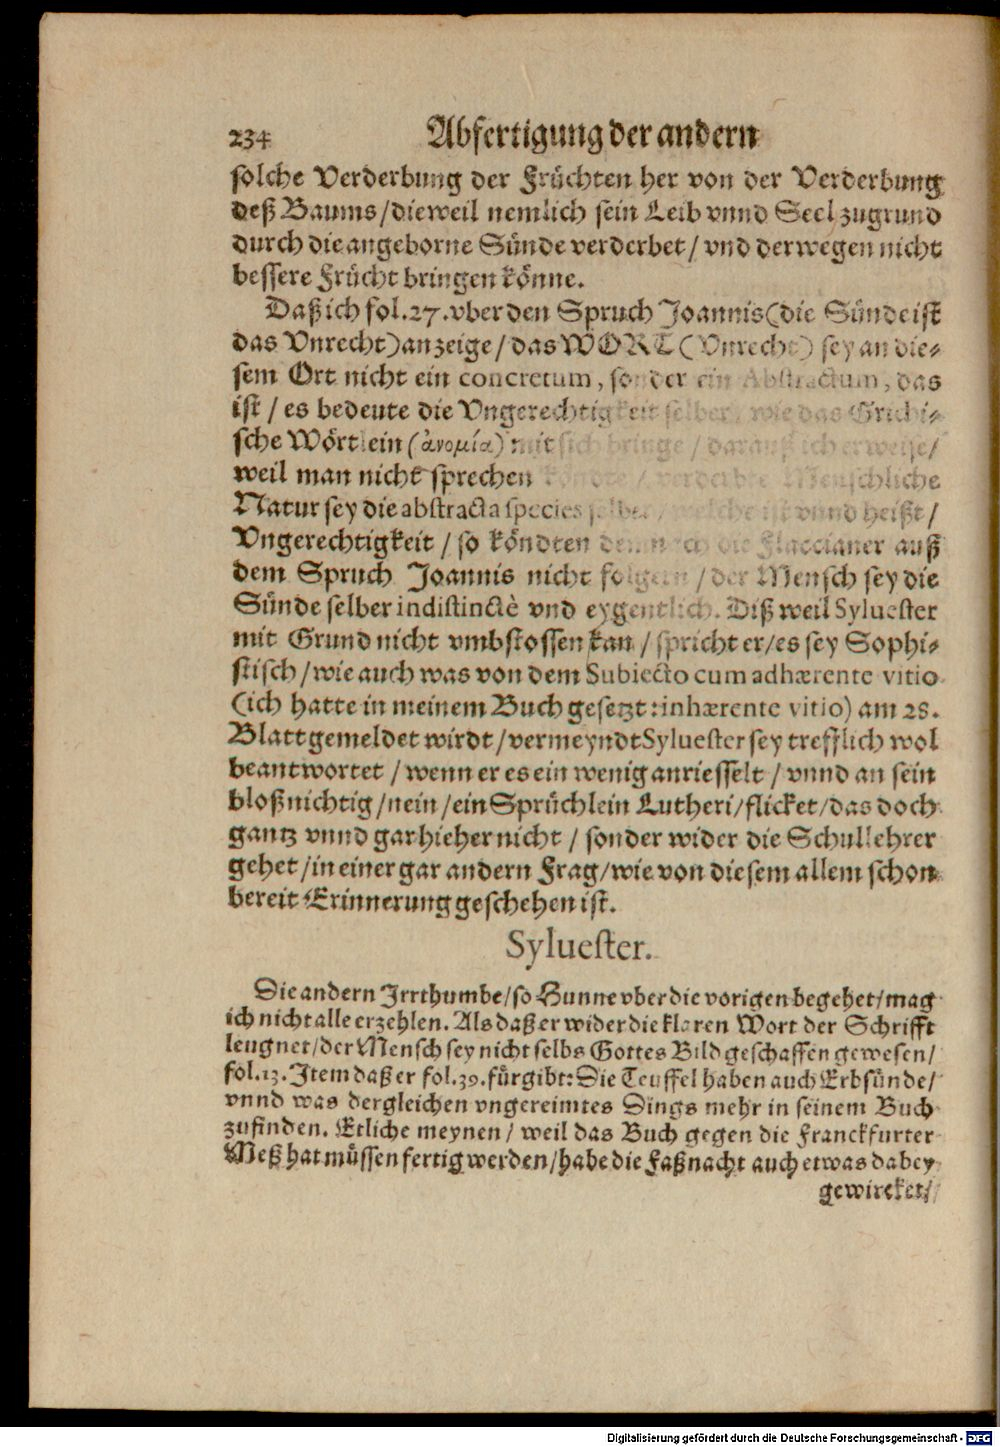 234 Abfertigung der andern
solche Verderbung der Früchten her von der Verderbung
deß Baums/dieweil nemlich sein Leib vnnd Seel zugrund
durch die angeborne Sünde verderbet/ vnd derwegen nicht
bessere Frücht bringen könne.
Daß ich fol.27.vber den Spruch Joannis(die Sünde ist
das Vnrecht)anzeige/das WORT (Vnrecht) sey an die-
sem Ort nicht ein concretum, sonder ein Abstractum, das
ist / es bedeute die Vngerechtigkeit selber, wie das Grichi-
sche Wörtlein (ἀνομία) mit sich bringe / darauß ich erweise/
weil man nicht sprechen köndte / verderbte Menschliche
Natur sey die abstracta species selber / welche ist vnnd heißt/
Vngerechtigkeit / so köndten dennoch die Flaccianer auß
dem Spruch Joannis nicht folgern / der Mensch sey die
Sünde selber indistinctè vnd eygentlich. Diß weil Syluester
mit Grund nicht vmbstossen kan / spricht er/es sey Sophi-
stisch/wie auch was von dem Subiecto cum adhærente vitio
(ich hatte in meinem Buch gesetzt:inhærente vitio) am 28.
Blatt gemeldet wirdt/vermeyndt Syluester sey trefflich wol
beantwortet /wenn er es ein wenig anriesselt / vnnd an sein
bloß nichtig/nein/ein Sprüchlein Lutheri/flicket/das doch
gantz vnnd gar hieher nicht / sonder wider die Schullehrer
gehet/in einer gar andern Frag/wie von diesem allem schon
bereit Erinnerung geschehen ist.
Syluester.
Die andern Jrrthumbe/so Hunne vber die vorigen begehet/mag
ich nicht alle erzehlen. Als daß er wider die klaren Wort der Schrifft
leugnet/der Mensch sey nicht selbs Gottes Bild geschaffen gewesen/
fol.13. Jtem daß er fol.39.fürgibt:Die Teuffel haben auch Erbsünde/
vnnd was dergleichen vngereimtes Dings mehr in seinem Buch
zufinden. Etliche meynen/ weil das Buch gegen die Franckfurter
Meß hat müssen fertig werden/habe die Faßnacht auch etwas dabey
gewircket/
Digitalisierung gefördert durch die Deutsche Forschungsgemeinschaft - DFG